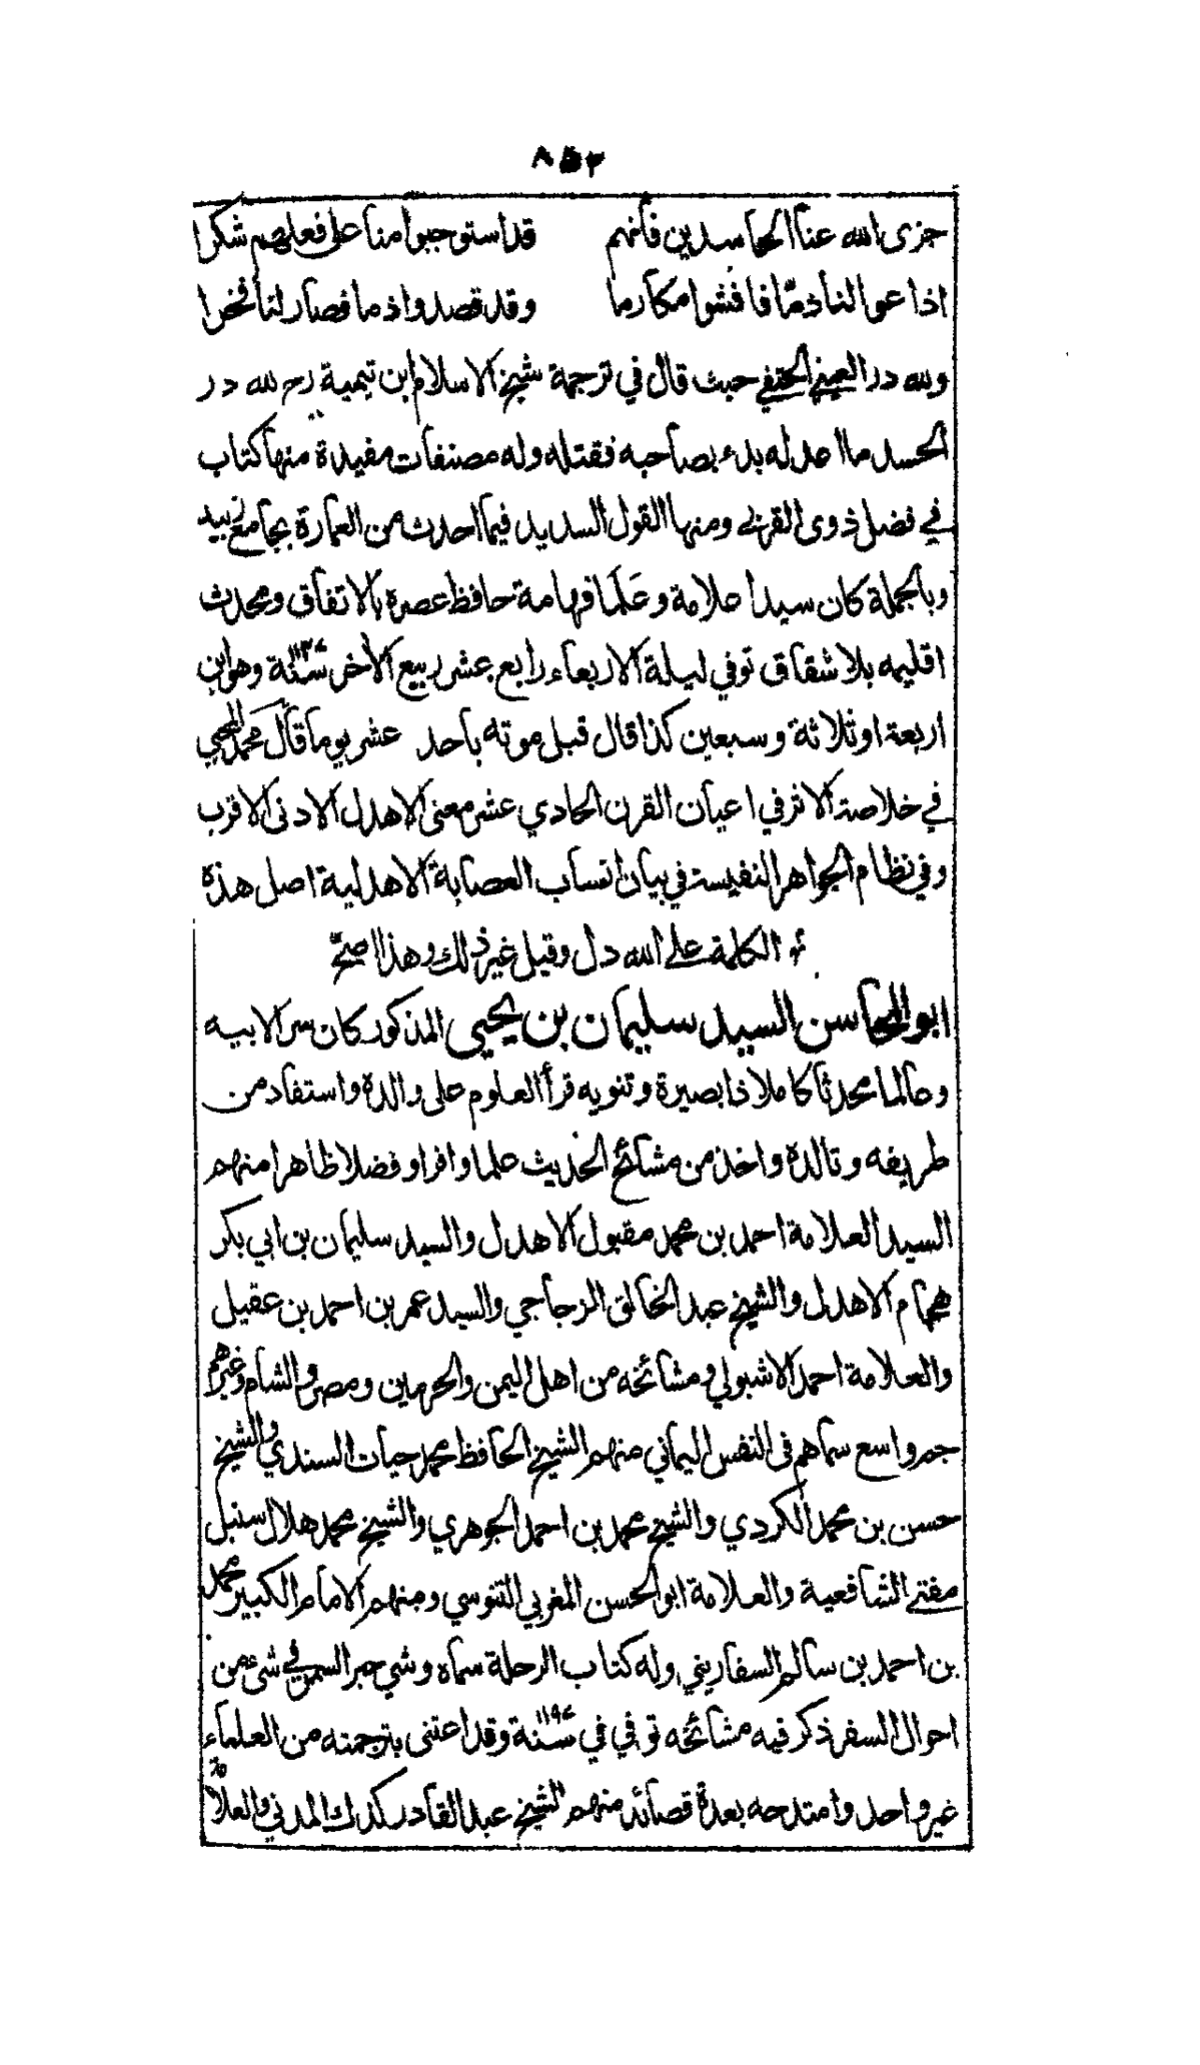 ٨٥٣
جزى الله عنا الحاسدين فانهم قد استوجبوا منا على فعلهم شكرا
اذاعوا لنا ذما فافشوا مكارما وقد قصدوا ذما فصار لنا فخرا
ولله در العيني الحنفي حيث قال في ترجمة شيخ الاسلام ابن تيمية رح لله در
الحسد ما اعدله بدء بصاحبه فقتله وله مصنفات مفيدة منها كتاب
في فضل ذوى القربى ومنها القول السديد فيما احدث من العمارة بجامع زبيد
وبالجملة كان سيدا علامة وعَلَما فهامة حافظ عصره بالاتفاق ومحدث
اقليمه بلا شقاق توفي ليلة الاربعاء رابع عشر ربيع الآخر سنة وهو ابن
اربعة او ثلاثة وسبعين كذا قال قبل موته باحد عشر يوما قال محمد المحبي
في خلاصة الاثر في اعيان القرن الحادي عشر معنى الاهدل الادنى الاقرب
وفي نظام الجواهر النفيسة في بيان انساب العصابة الاهدلية اصل هذه
الكلمة على الله دل وقيل غير ذلك وهذا اصح
ابو المحاسن السيد سليمان بن يحيى المذكور كان سر الابيه
وعالما محدثا كاملا ذا بصيرة وتنويه قرأ العلوم على والده واستفاد من
طريفه وتالده واخذ من مشائخ الحديث علما وافرا وفضلا ظاهرا منهم
السيد العلامة احمد بن محمد مقبول الاهدل والسيد سليمان بن ابي بكر
هجام الاهدل والشيخ عبد الخالق المزجاجي والسيد عمر بن احمد بن عقيل
والعلامة احمد الاشبولي ومشائخه من اهل اليمن والحرمين ومصر والشام وغيرهم
جم واسع سماهم فى النفس اليماني منهم الشيخ الحافظ محمد حيات السندي والشيخ
حسن بن محمد الكردي والشيخ محمد بن احمد الجوهري والشيخ محمد هلال سنبل
مفتي الشافعية والعلامة ابو الحسن المغربي التنوسي ومنهم الامام الكبير محمد
بن احمد بن سالم السفاريني وله كتاب الرحلة سماه وشي حبر السمر في شيء من
احوال السفر ذكر فيه مشائخه توفي في سنة ١١٩٧ وقد اعتنى بترجمته من العلماء
غير واحد وامتدحه بعدة قصائد منهم الشيخ عبد القادر كدك المدني والعلامة